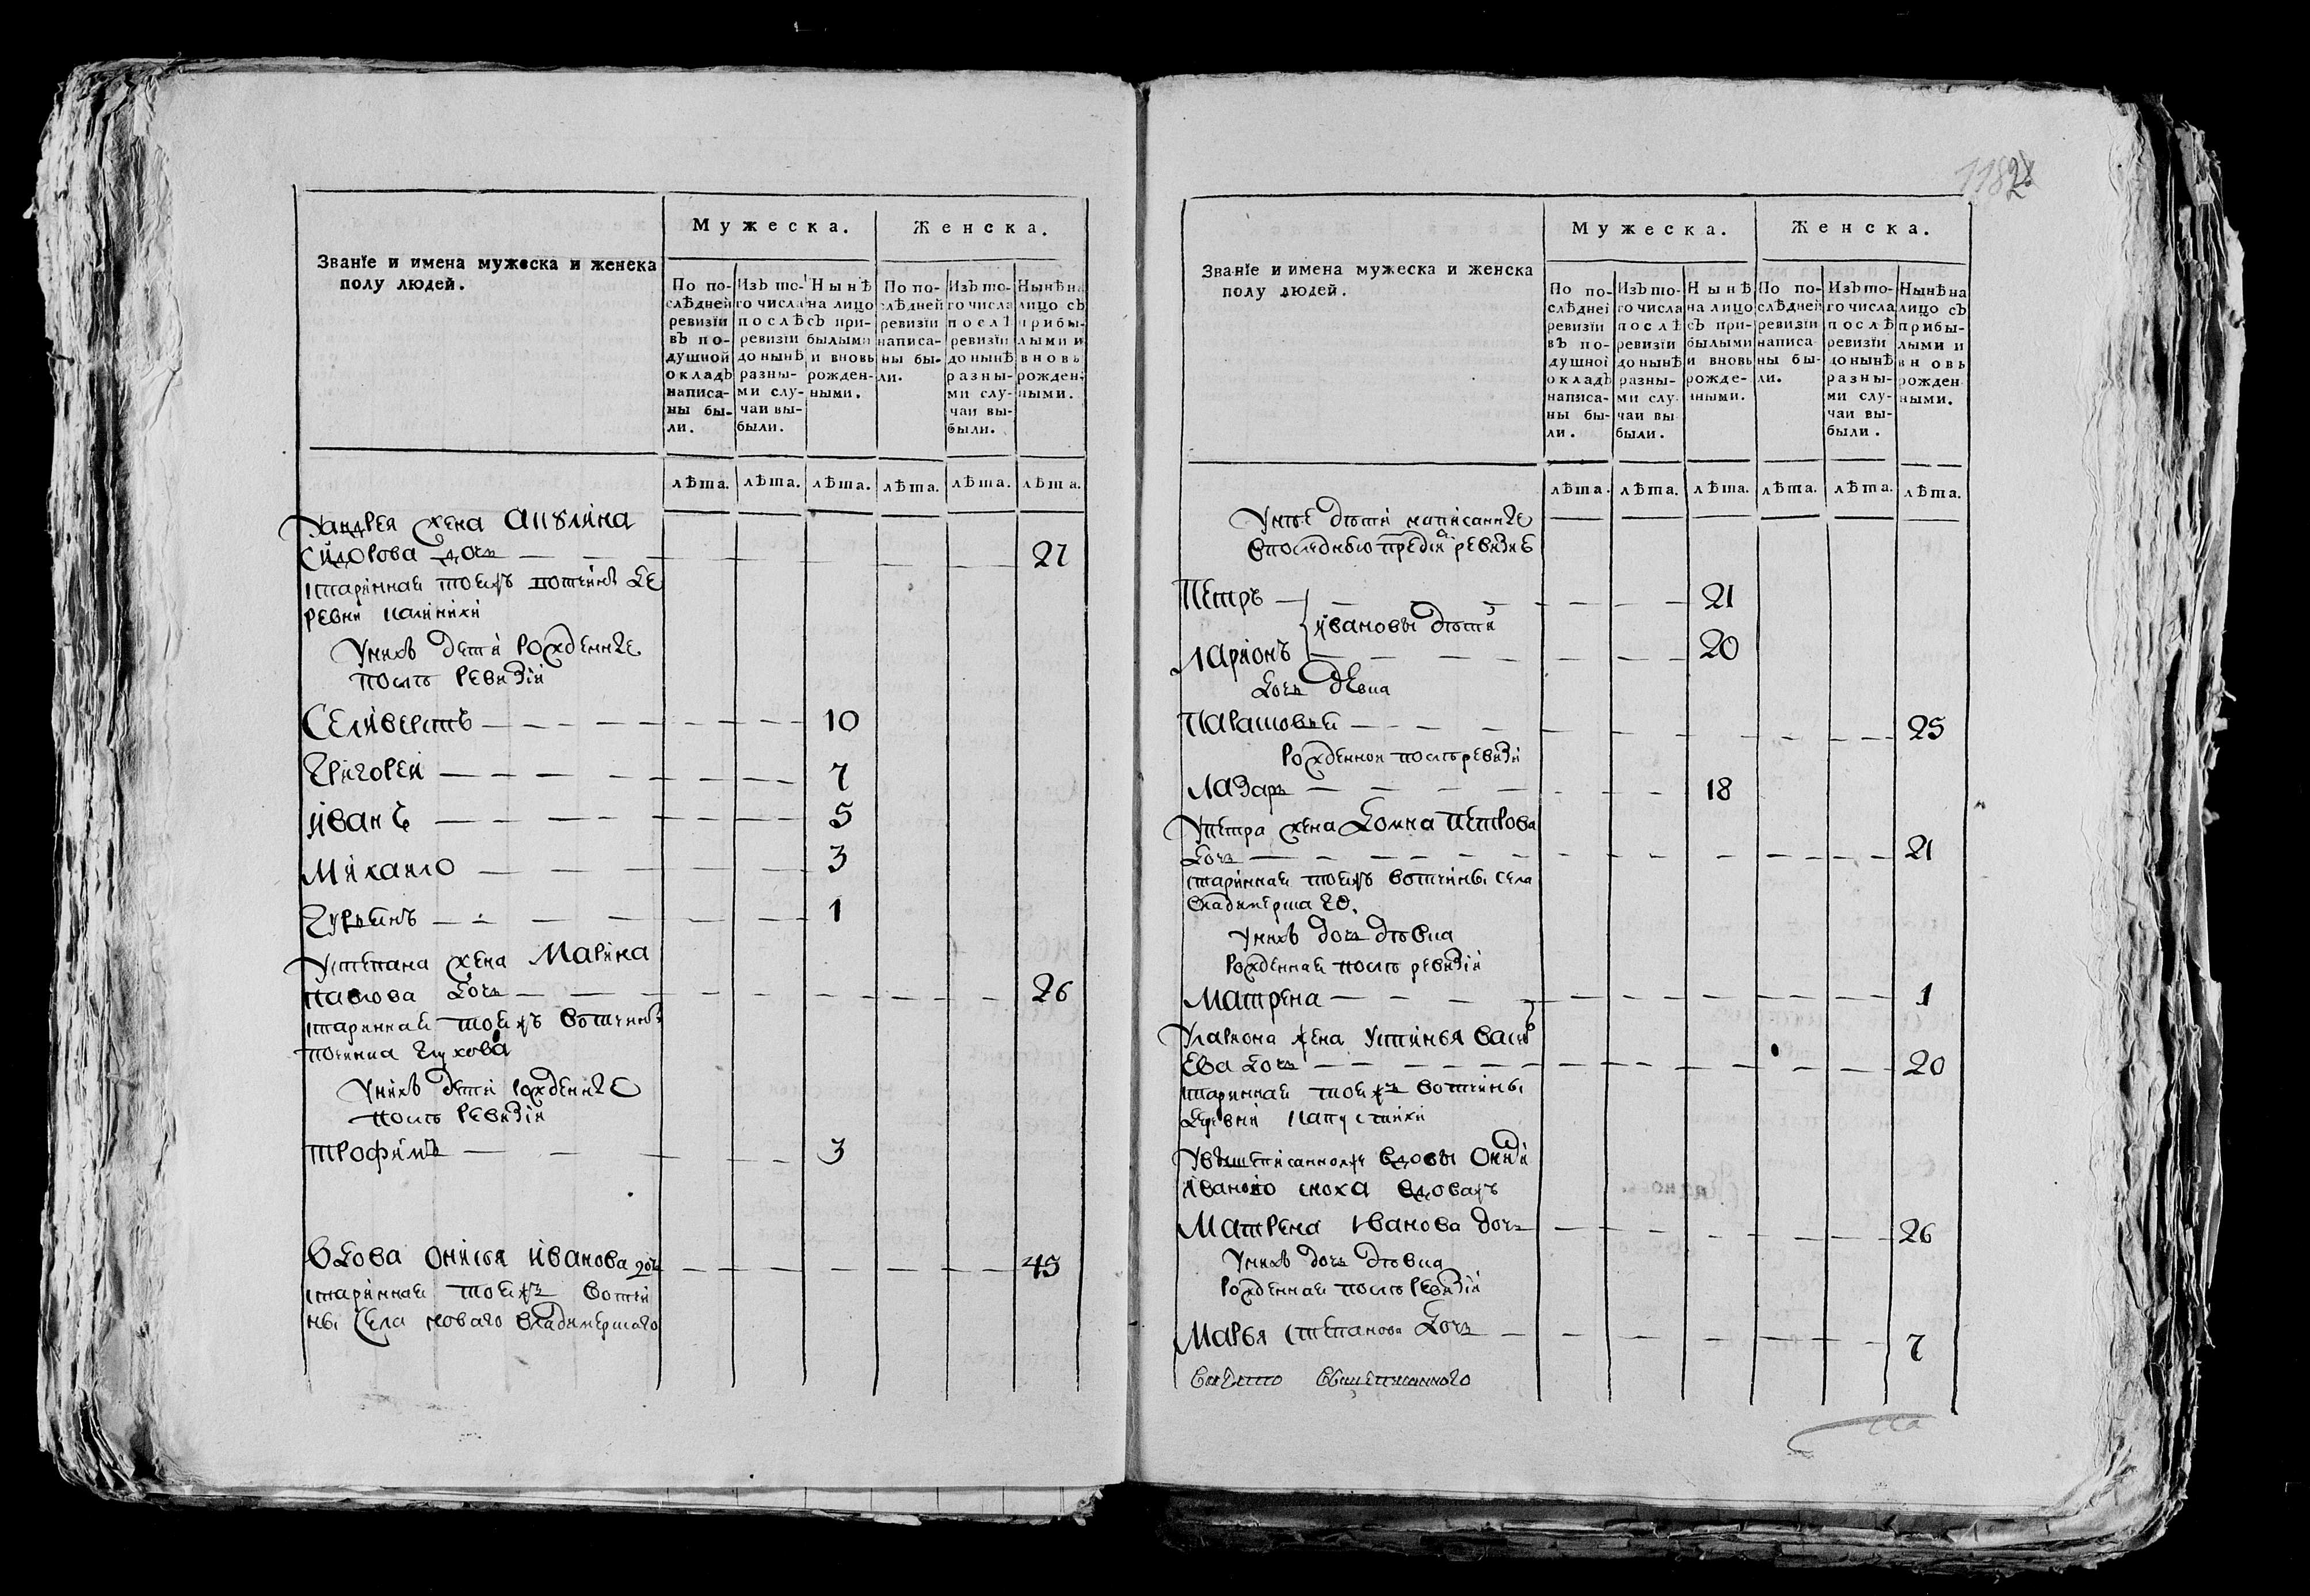 Званїе и имена мужеска и женска
полу людей.
Мужеска.
Женска.
По по-
слѣдней
ревизїи
въ по-
душной
окладъ
написа-
ны бы-
ли.
Изъ то-
го числа
послѣ
ревизїи
до нынѣ
разны-
ми слу-
чаи вы-
были.
Нынѣ
на лицо
съ при-
былыми
и вновь
рожден-
ными.
По по-
слѣдней
ревизїи
написа-
ны бы-
ли.
Изъ то-
го числа
послѣ
ревизїи
до нынѣ
разны-
ми слу-
чаи вы-
были.
Нынѣ на
лицо съ
прибы-
лыми и
вновь
рожден-
ными.
лѣта. лѣта. лѣта. лѣта. лѣта. лѣта.
Уандрея жена Акулина
Сидорова дочь 27
старинная тоежъ вотчинъ де
ревни калинихи
Унихъ дети рожденные
послѣ ревизіи
Селиверстъ 10
Григореи 7
иванъ 5
Михаило 3
Гурьянъ 1
Устепана жена Марина
павлова дочь 26
старинная тоежъ вотчины
починка глухова
Унихъ дети рожденные
послѣ ревизіи
трофимъ 3
Вдова Онисья иванова дочь 45
старинная тоежъ вотчи
ны села новаго владимерскаго
1182
Званїе и имена мужеска и женска
полу людей.
Мужеска.
Женска.
По по-
слѣдней
ревизїи
въ по-
душной
окладъ
написа-
ны бы-
ли.
Изъ то-
го числа
послѣ
ревизїи
до нынѣ
разны-
ми слу-
чаи вы-
были.
Нынѣ
на лицо
съ при-
былыми
и вновь
рожде-
нными.
По по-
слѣдней
ревизїи
написа-
ны бы-
ли.
Изъ то-
го числа
послѣ
ревизїи
до нынѣ
разны-
ми слу-
чаи вы-
были.
Нынѣ на
лицо съ
прибы-
лыми и
вновь
рожден-
ными.
лѣта. лѣта. лѣта. лѣта. лѣта. лѣта.
Унее дѣти написанные
впоследнюю ревизиѣ
Петръ 21
ивановы дѣти
Ларионъ 20
дочь девка
Парасковья 25
рожденнои послѣ ревизи
Лазарь 18
Упетра жена Домна петрова
дочь 21
старинная тоежъ вотчины села
владимерска го.
Унихъ дочь дѣвка
рожденная послѣ ревизіи
Матрена 1
Улариона жена Устинья васил
ева дочь 20
старинная тоежъ вотчины
деревни капустихи
вдовы
ивановои сноха вдоважъ
Матрена иванова дочь 26
Унихъ дочь дѣвка
рожденная послѣ ревизіи
Марья степанова дочь 7